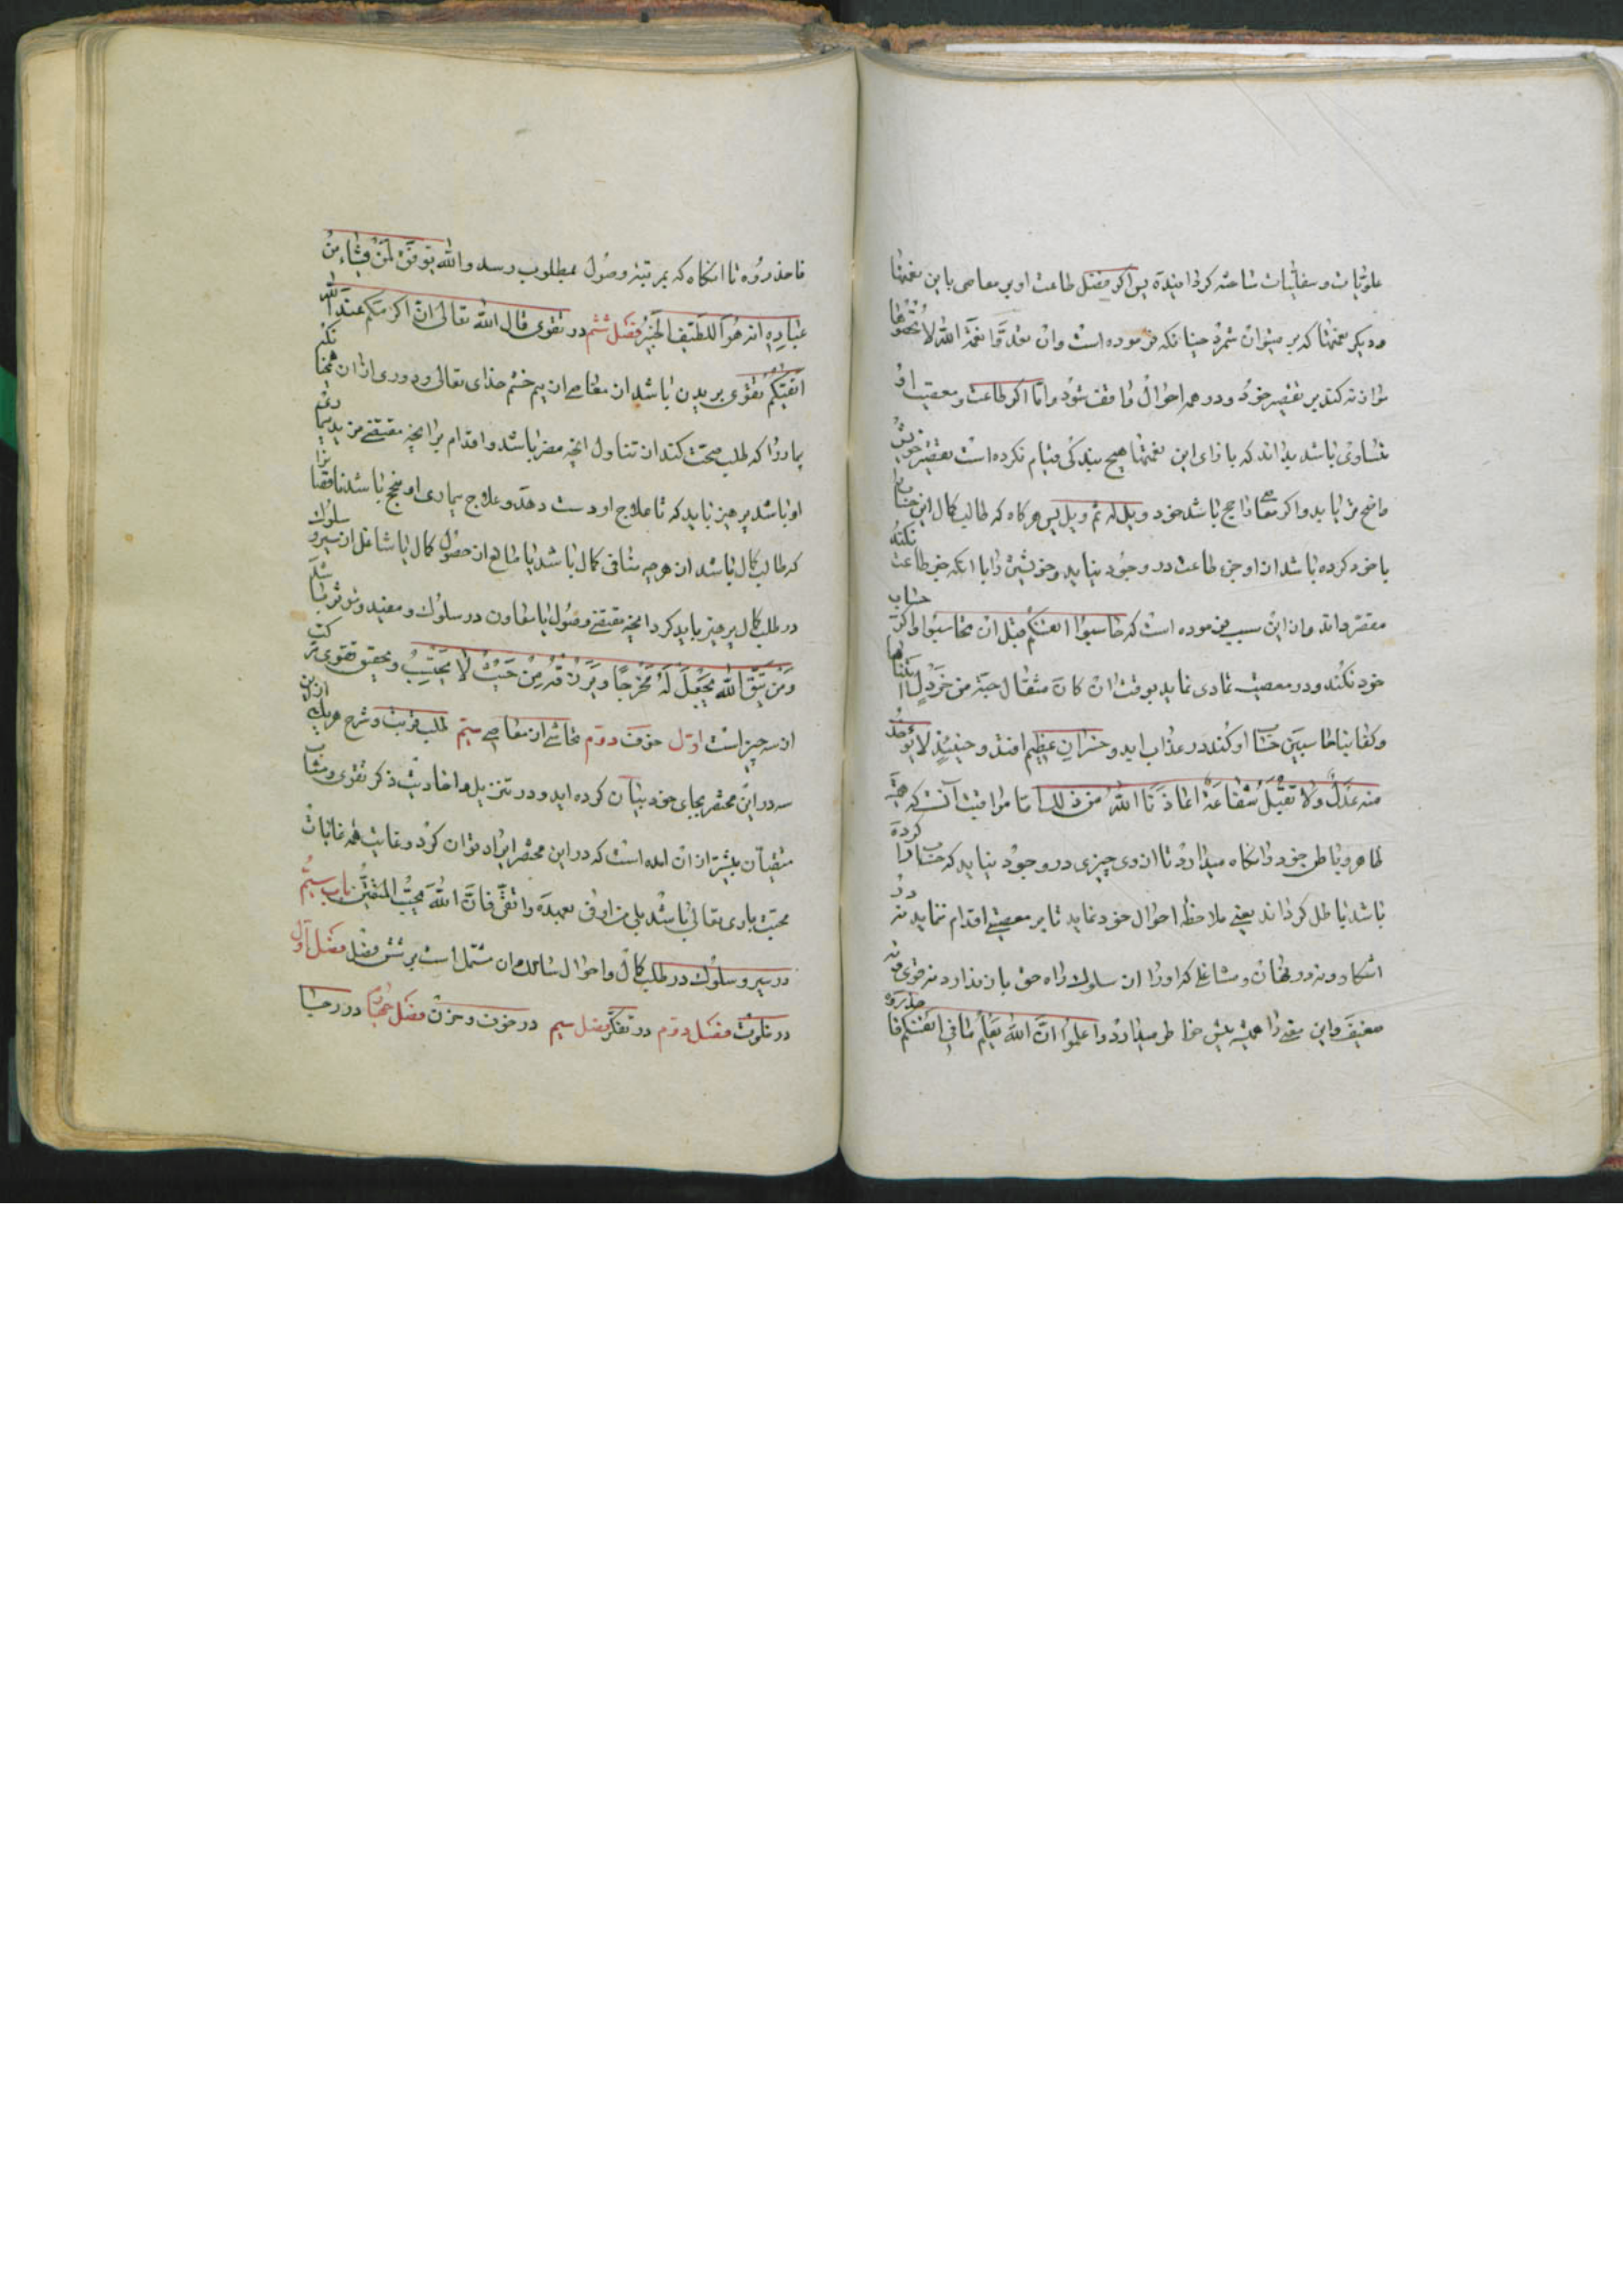 علویات و سفلیات شاعنه کردانیده پس اگر فضل طاعت او بر معاصی با این نعمتها
و دیگر نعمتها که بر میتوان شمرد چنانکه فرموده است وان تعدوا نعمة الله لا تحصوها
موازنه کند بر تقصیر خود و در همه احوال واقف شود و اما اگر طاعت و معصیت او
متساوی باشد بداند که بازای این نعمتها هیچ بندگی قیام نکرده است تقصیر خویش
واضح تر یابد و اگر معاصی راجح باشد خود ویل له ثم ویل پس هرگاه که طالب کمال این حساب
با خود کرده باشد از او جز طاعت در وجود نیاید و خویشتن را با آنکه جز طاعت نکند
مقصر داند و از این سبب فرموده است که حاسبوا انفسکم قبل ان تحاسبوا و اگر حساب
خود نکند و در معصیت تمادی نماید بوقت ان کان مثقال حبة من خردل اتینا بها
وکفی بنا حاسبین حساب او کنند در عذاب ابد و خسران عظیم افتد و حینئذ لا یؤخذ
منه عدل ولا تقبل شفاعة اعاذنا الله من ذلك اما مراقبت آنست که همیشه
ظاهر و باطن خود را نگاه میدارد تا از وی چیزی در وجود نیاید که حسنات را کرده
باشد باطل گرداند یعنی ملاحظه احوال خود نماید تا بر معصیتی اقدام ننماید نه در
آشکار و نه در نهان و شاغلی که او را از سلوک راه حق باز ندارد نه قوی و نه
ضعیف و این معنی را همیشه پیش خاطر میدارد واعلموا ان الله یعلم ما فی انفسکم فاحذروه
فاحذروه تا آنگاه که بمرتبه وصول بمطلوب رسد والله یوفق لمن یشاء من
عباده انه هو اللطیف الخبیر فصل ششم در تقوی قال الله تعالی ان اکرمکم عند الله
اتقیکم تقوی پرهیزیدن باشد از معاصی از بیم خشم خدای تعالی و دوری از آن همچنانکه
بیمار را که طلب صحت کند از تناول آنچه مضر باشد و اقدام بر آنچه مقتضی مزید بیماری
او باشد پرهیز باید که تا علاج او دست دهد و علاج بیماری او منجح باشد ناقصان را
که طالب کمال باشد از هرچه منافی کمال باشد یا مانع از حصول کمال یا شاغل از سیر و سلوک
در طلب کمال پرهیز باید کرد تا آنچه مقتضی وصول یا معاون در سلوک و مفید و موثر باشد
ومن یتق الله یجعل له مخرجا ویرزقه من حیث لا یحتسب و بحقیق تقوی مرکب
از سه چیز است اول خوف دوم تحاشی از معاصی سیم طلب قربت و شرح هر یک از این
سه در این مختصر بجای خود بیان کرده اید و در تنزیل و احادیث ذکر تقوی و مثاب
متقیان بیشتر از آن امده است که در این مختصر ایراد توان کرد و غایت همه غایات
محبت باری تعالی باشد بلی من اوفی بعهده واتقی فان الله یحب المتقین باب سیم
در سیر و سلوک در طلب کمال و احوال سالک و ان مشتمل است بر شش فصل فصل اول
در خلوت فصل دوم در تفکر فصل سیم در خوف و حزن فصل چهارم در رجا